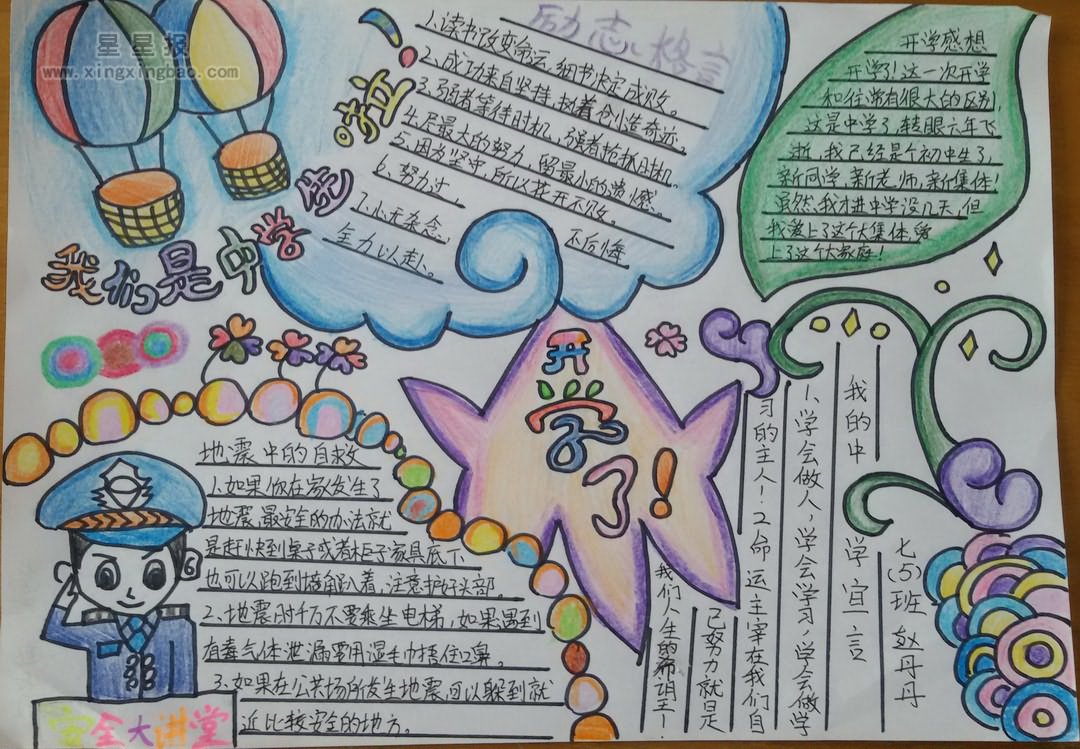 星星报
www.xingxingbao.com
我们是中学生啦!
励志格言
1.读书改变命运,细节决定成败。
2.成功来自坚持,执着创造奇迹。
3.弱者等待时机,强者抢抓时机。
4.尽最大的努力,留最小的遗憾。
5.因为坚守,所以花开不败。
6.努力过,
不后悔
7.心无杂念,
全力以赴。
开学感想
开学了!这一次开学
和往常有很大的区别,
这是中学了,转眼六年飞
逝,我已经是个初中生了,
新同学,新老师,新集体!
虽然,我才进中学没几天,但
我爱上了这个大集体,爱
上了这个大家庭!
开学了!
地震中的自救
1.如果你在家发生了
地震,最安全的办法就
是赶快到桌子或者柜子家具底下
也可以跑到墙角趴着,注意护好头部。
2.地震时千万不要乘坐电梯,如果遇到
有毒气体泄漏要用湿毛巾捂住口鼻。
3.如果在公共场所发生地震,可以躲到就
近比较安全的地方。
安全大讲堂
七(5)班 赵丹丹
我的中学宣言
1、学会做人,学会学习,学会做学
习的主人!2命运主宰在我们自
己努力就是
我们人生的希望!